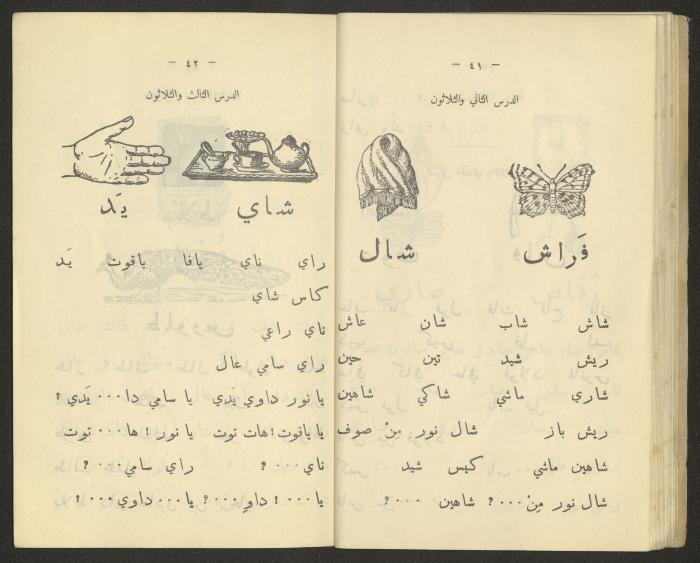 - ٤١ -
الدرس الثاني والثلاثون
فَراش شال
شاش شاب شان عاش
ريش شيد تين حين
شاري ماشي شاكي شاهين
ريش باز شال نور مِنْ صوف
شاهين ماشي كيس شيد
شال نور مِنْ ٠٠٠؟ شاهين ٠٠٠؟
- ٤٢ -
الدرس الثالث والثلاثون
شاي يَد
راي ناي يافا ياقوت يَد
كاس شاي
ناي راعي
راي سامي عال
يا نور داوي يَدي يا سامي دا٠٠٠ يَدي؟
يا ياقوت! هات توت يا نور! ها٠٠٠ توت
ناي ٠٠٠؟ راي سامي٠٠٠؟
يا ٠٠٠! داوِ ٠٠٠؟ يا ٠٠٠ داوي ٠٠٠؟